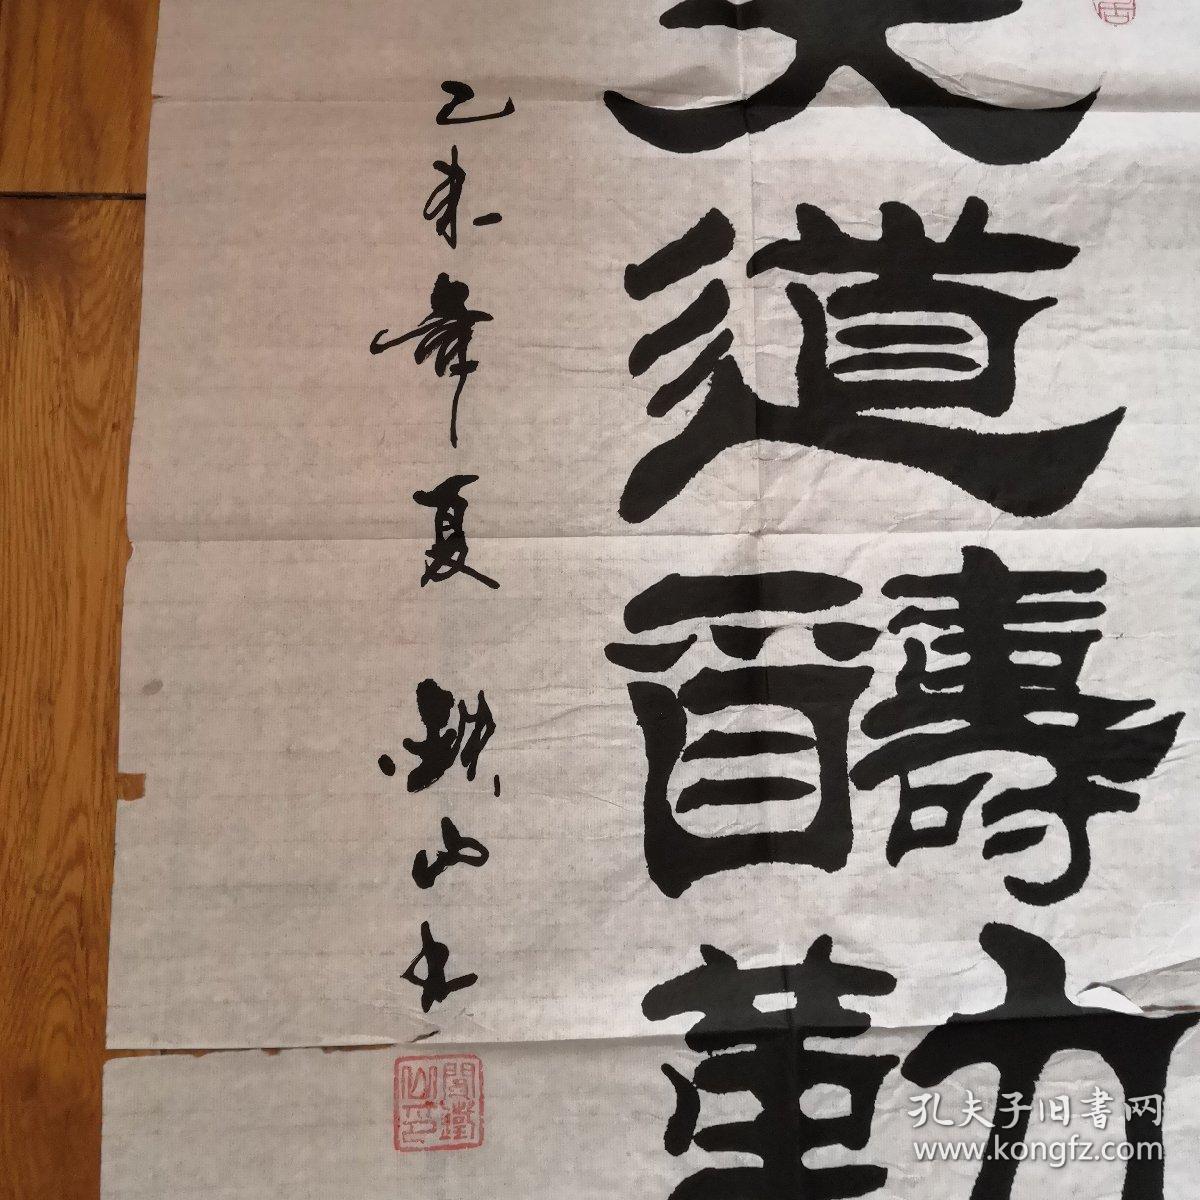 天道酬勤
乙未年夏
铁山书
閆鐵山印
孔夫子旧書网
www.kongfz.com